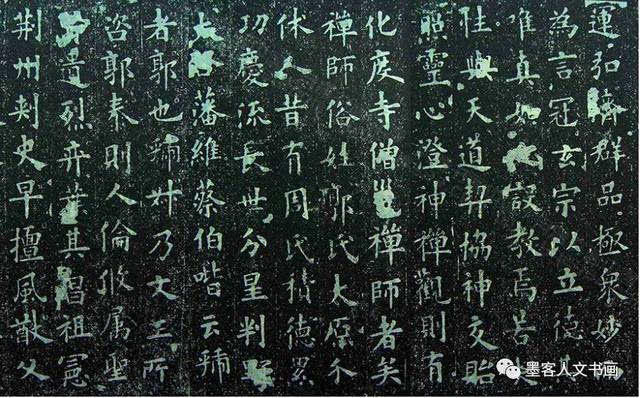 運弘濟群品極衆妙
為言冠玄宗以立德其
唯真如設教焉若夫
性與天道契協神交貽
照靈心澄神禪觀則有
化度寺僧邕禪師者矣
禪師俗姓郭氏太原介
休人昔有周氏積德累
功慶流長世分星判野
大啓藩維蔡伯喈云虢
者郭也虢叔乃文王所
咨郭泰則人倫攸属聖
遺烈弈葉其昌祖憲
荊州刺史早擅風猷父
墨客人文书画